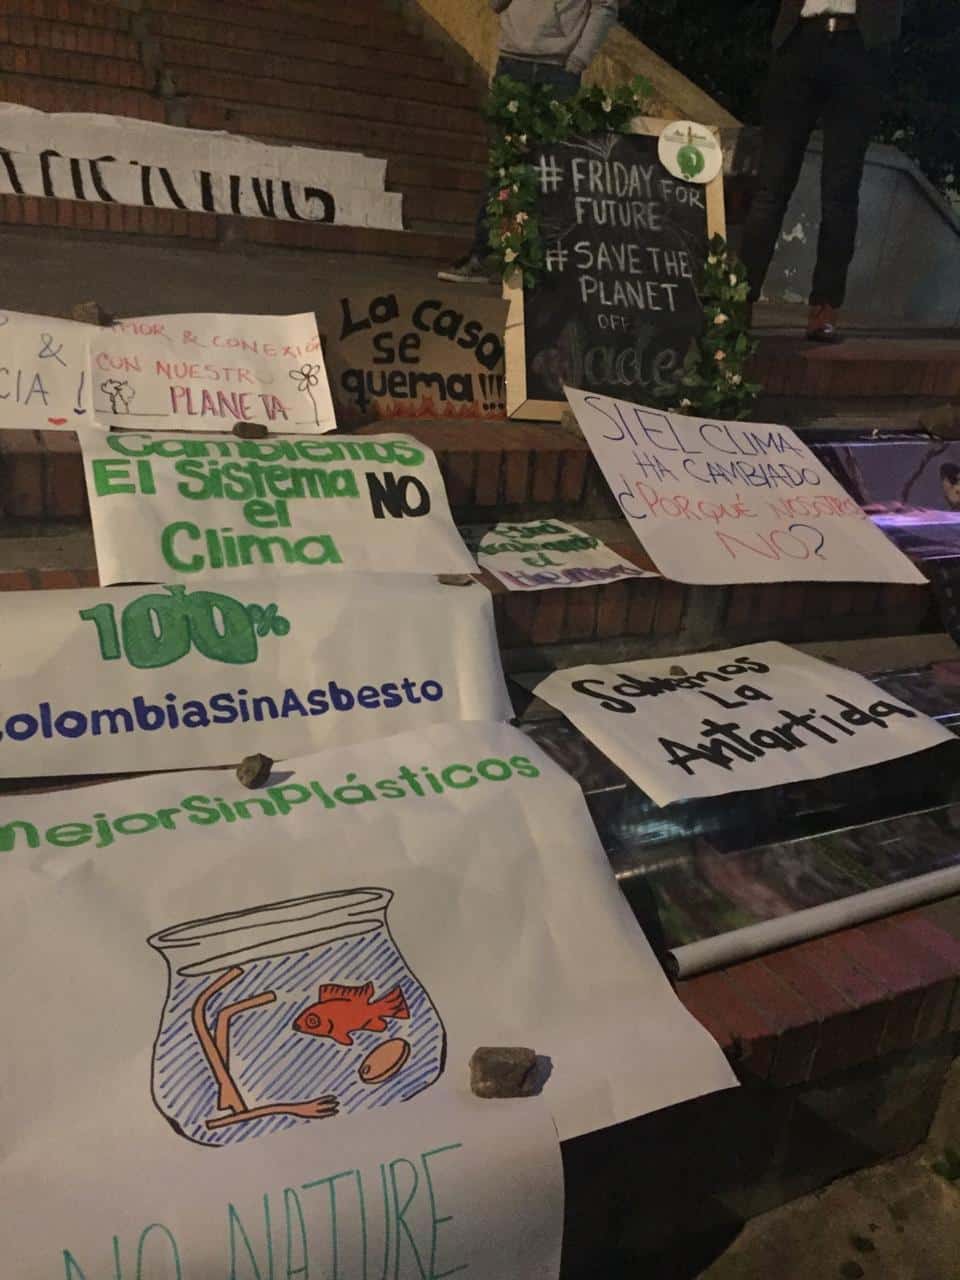 # FRIDAY FOR
FUTURE
# SAVE THE
PLANET
OFF
&
CIA!
AMOR & CONEXIÓN
CON NUESTR
PLANETA
La casa
se
quema!!!
Cambiemos
El Sistema NO
el
Clima
SI EL CLIMA
HA CAMBIADO
¿PORQUÉ NOSOTROS
NO?
el
100%
ColombiaSinAsbesto
Salvemos
La
Antartida
MejorSinPlásticos
NO NATURE